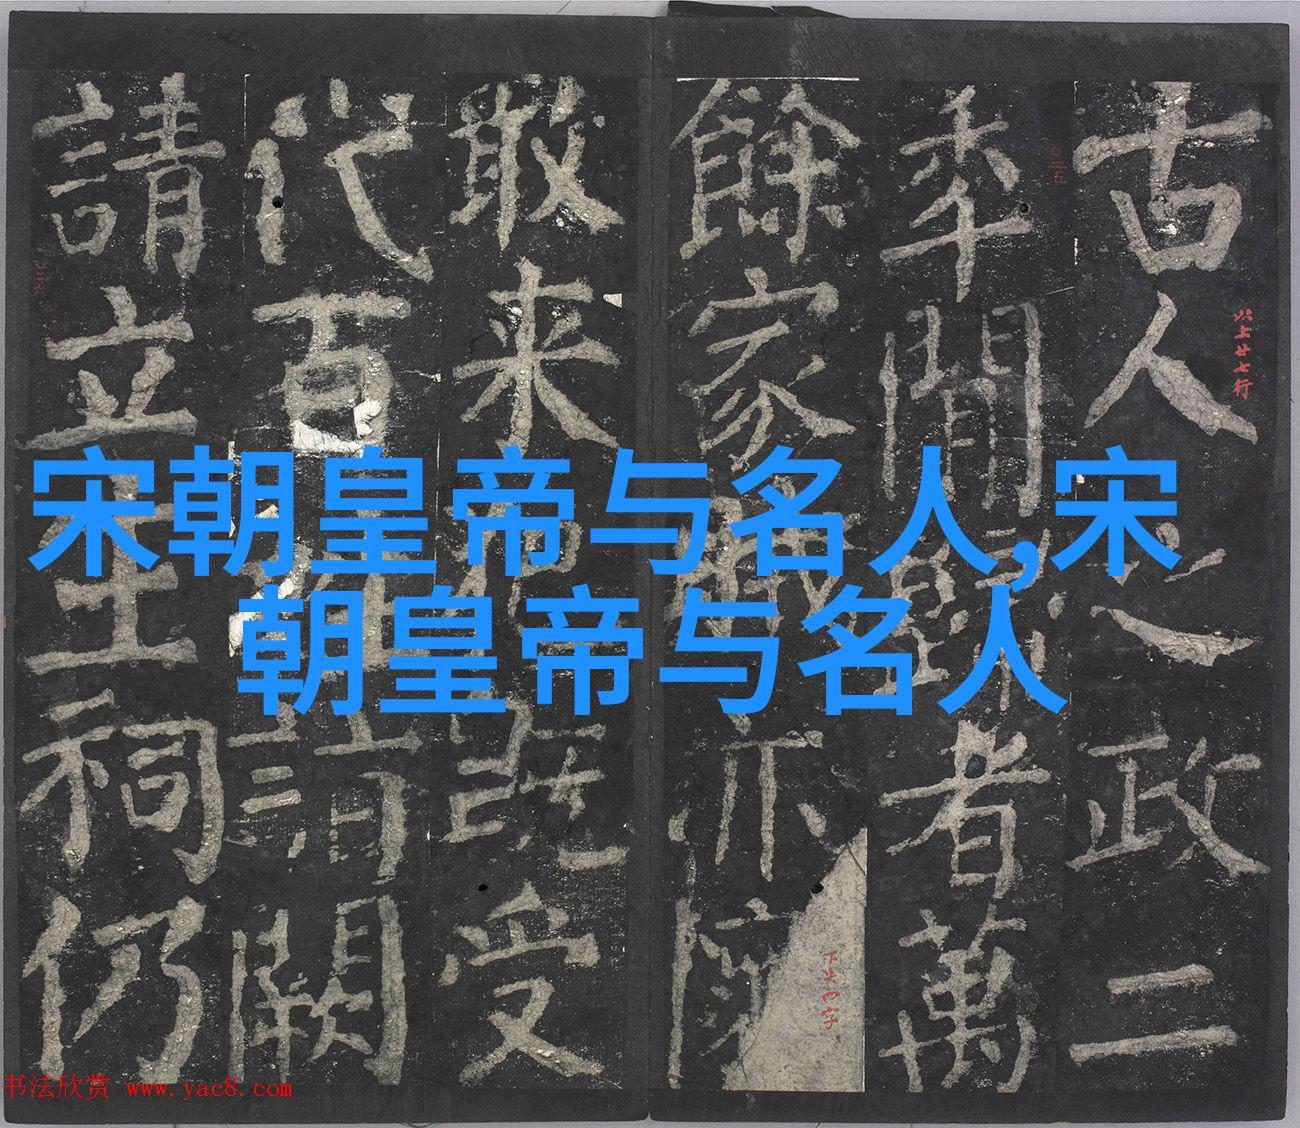 宋朝皇帝与名人,宋
朝皇帝与名人
古人之政二
秊閒歸者萬
餘家亦
敢来既受
代百姓詣闕
請立生祠仍
以上廿七行
下失四字
书法欣赏 www.yac8.com